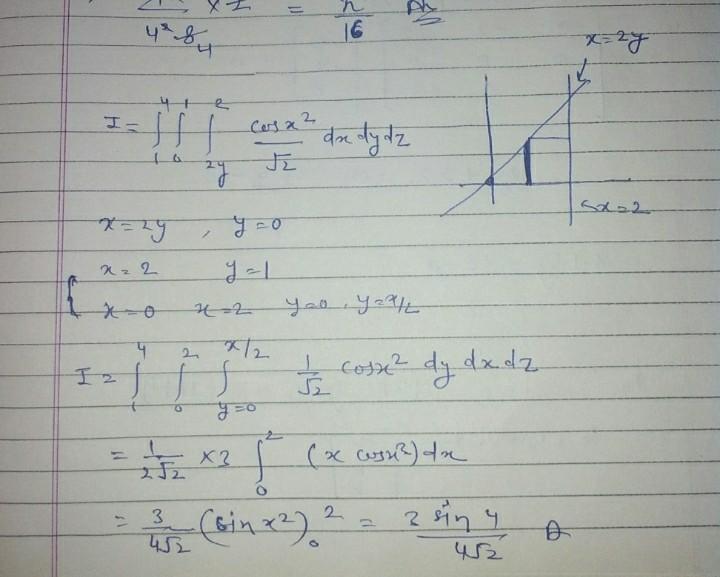 = π/16 Ans
x=2y
I = ∫₁⁴ ∫₀¹ ∫_{2y}^{2} cosx²/√2 dx dy dz
x=2
x=2y , y=0
x=2 y=1
{ x=0 x=2 y=0, y=x/2
I = ∫₁⁴ ∫₀² ∫_{y=0}^{x/2} 1/√2 cosx² dy dx dz
= 1/2√2 ×3 ∫₀² (x cosx²)dx
= 3/4√2 (sin x²)₀² = 3 sin 4/4√2 A